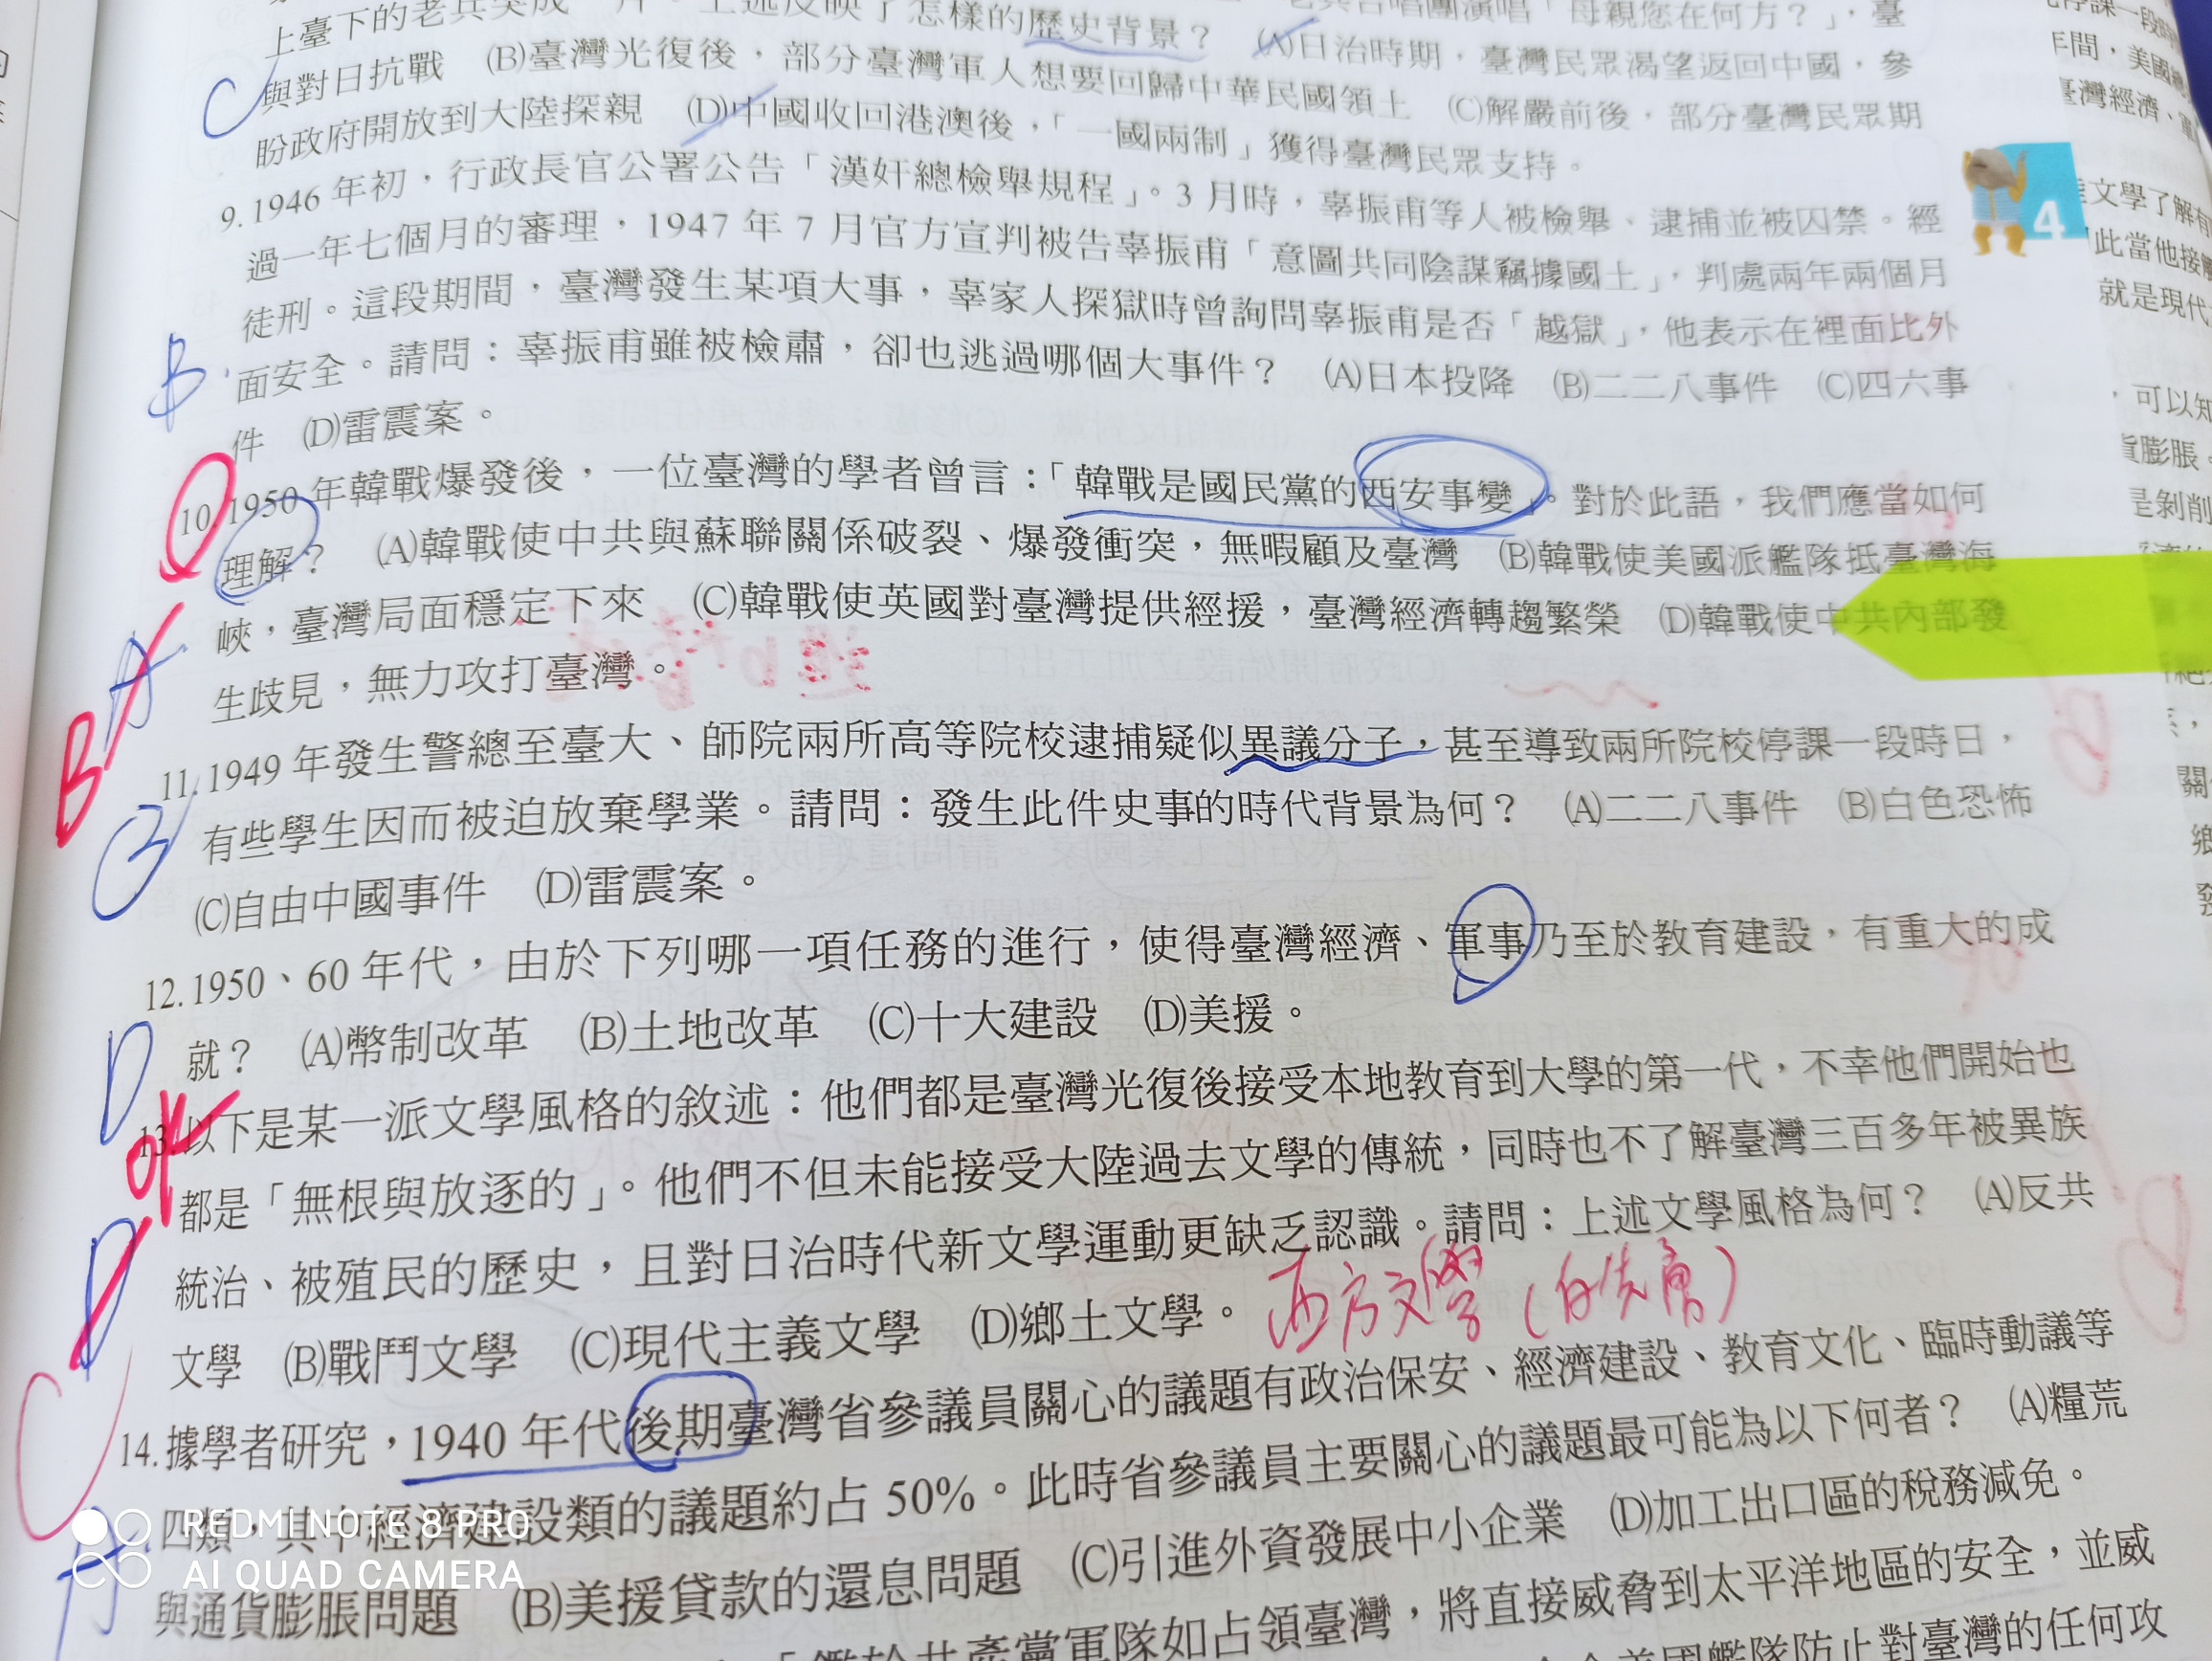 上臺下的老兵哭成一片。上述反映了怎樣的歷史背景？ (A)日治時期，臺灣民眾渴望返回中國，參
與對日抗戰 (B)臺灣光復後，部分臺灣軍人想要回歸中華民國領土 (C)解嚴前後，部分臺灣民眾期
盼政府開放到大陸探親 (D)中國收回港澳後，「一國兩制」獲得臺灣民眾支持。
C
9.1946年初，行政長官公署公告「漢奸總檢舉規程」。3月時，辜振甫等人被檢舉、逮捕並被囚禁。經
過一年七個月的審理，1947年7月官方宣判被告辜振甫「意圖共同陰謀竊據國土」，判處兩年兩個月
徒刑。這段期間，臺灣發生某項大事，辜家人探獄時曾詢問辜振甫是否「越獄」，他表示在裡面比外
面安全。請問：辜振甫雖被檢肅，卻也逃過哪個大事件？ (A)日本投降 (B)二二八事件 (C)四六事
件 (D)雷震案。
B
10.1950年韓戰爆發後，一位臺灣的學者曾言：「韓戰是國民黨的西安事變」。對於此語，我們應當如何
理解？ (A)韓戰使中共與蘇聯關係破裂、爆發衝突，無暇顧及臺灣 (B)韓戰使美國派艦隊抵臺灣海
峽，臺灣局面穩定下來 (C)韓戰使英國對臺灣提供經援，臺灣經濟轉趨繁榮 (D)韓戰使中共內部發
生歧見，無力攻打臺灣。
A
B
11.1949年發生警總至臺大、師院兩所高等院校逮捕疑似異議分子，甚至導致兩所院校停課一段時日，
有些學生因而被迫放棄學業。請問：發生此件史事的時代背景為何？ (A)二二八事件 (B)白色恐怖
(C)自由中國事件 (D)雷震案。
12.1950、60年代，由於下列哪一項任務的進行，使得臺灣經濟、軍事乃至於教育建設，有重大的成
就？ (A)幣制改革 (B)土地改革 (C)十大建設 (D)美援。
D
13.以下是某一派文學風格的敘述：他們都是臺灣光復後接受本地教育到大學的第一代，不幸他們開始也
都是「無根與放逐的」。他們不但未能接受大陸過去文學的傳統，同時也不了解臺灣三百多年被異族
統治、被殖民的歷史，且對日治時代新文學運動更缺乏認識。請問：上述文學風格為何？ (A)反共
文學 (B)戰鬥文學 (C)現代主義文學 (D)鄉土文學。
西方文學(白先勇)
D
C
14.據學者研究，1940年代後期臺灣省參議員關心的議題有政治保安、經濟建設、教育文化、臨時動議等
四類，其中經濟建設類的議題約占50%。此時省參議員主要關心的議題最可能為以下何者？ (A)糧荒
與通貨膨脹問題 (B)美援貸款的還息問題 (C)引進外資發展中小企業 (D)加工出口區的稅務減免。
A
「鑑於共產黨軍隊如占領臺灣，將直接威脅到太平洋地區的安全，並威
美國艦隊防止對臺灣的任何攻
4
年間，美國
臺灣經濟、軍
文學了解
此當他接
就是現代
，可以知
貨膨脹。
是剝削
REDMI NOTE 8 PRO
AI QUAD CAMERA